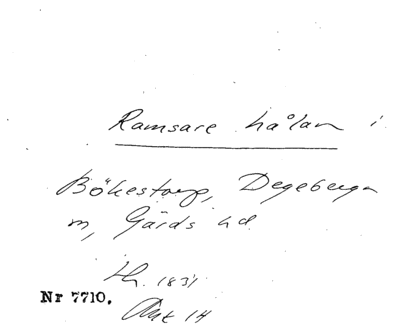 Ramsare hålan i
Bökestorp, Degeberga
m, Gärds hd
Lh. 1831
Nr 7710.
Akt 14